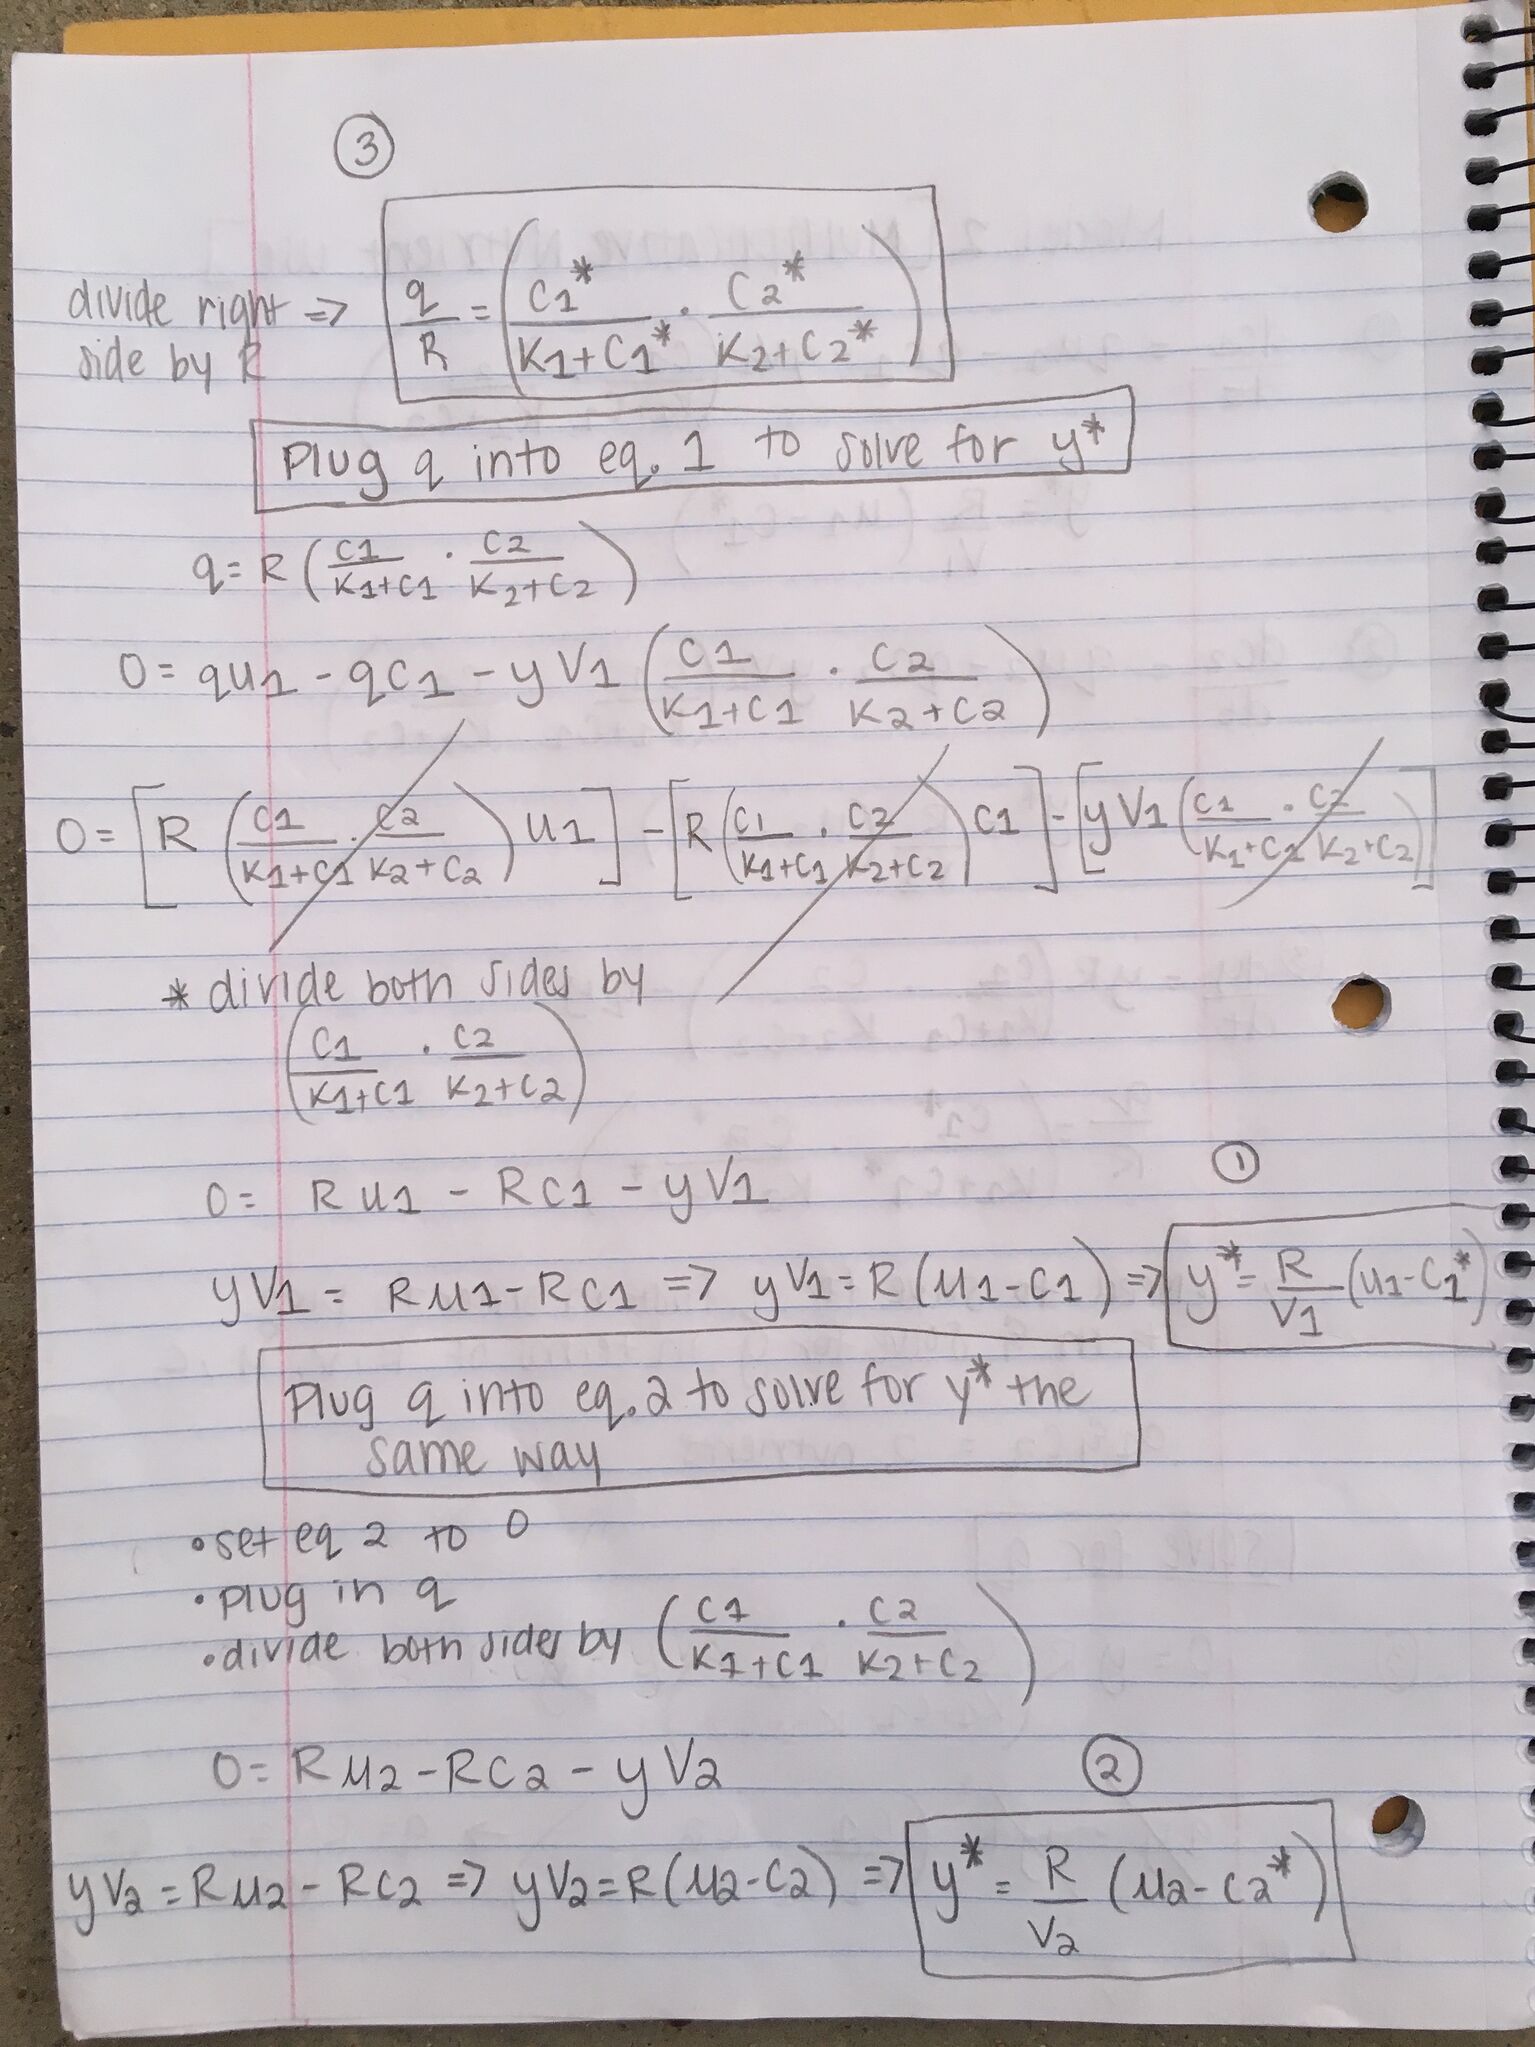 ③
divide right => q/R = (C1*/K1+C1* · C2*/K2+C2*)
side by R
Plug q into eq. 1 to solve for y*
q = R (C1/K1+C1 · C2/K2+C2)
0 = qu1 - qC1 - yV1 (C1/K1+C1 · C2/K2+C2)
0 = [R (C1/K1+C1 · C2/K2+C2) u1] - [R (C1/K1+C1 · C2/K2+C2) C1] - [yV1 (C1/K1+C1 · C2/K2+C2)]
* divide both sides by
(C1/K1+C1 · C2/K2+C2)
①
0 = Ru1 - RC1 - yV1
yV1 = Ru1 - RC1 => yV1 = R(u1-C1) => y* = R/V1 (u1-C1*)
Plug q into eq. 2 to solve for y* the
same way
• set eq 2 to 0
• plug in q
• divide both sides by (C1/K1+C1 · C2/K2+C2)
0 = Ru2 - RC2 - yV2 ②
yV2 = Ru2 - RC2 => yV2 = R(u2-C2) => y* = R/V2 (u2-C2*)